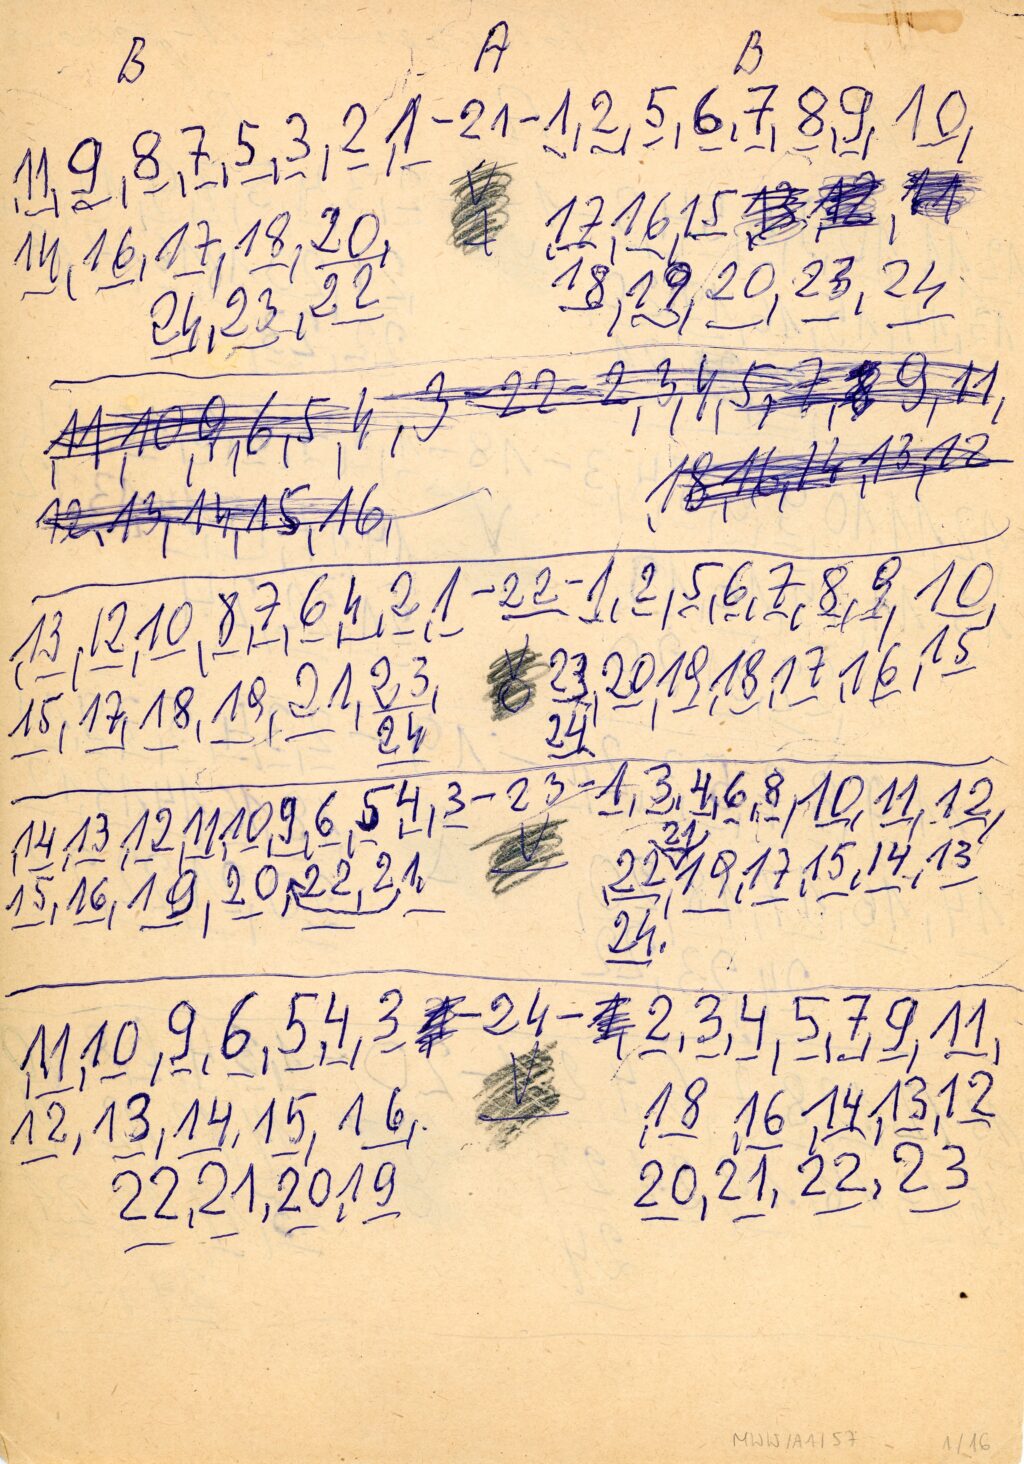 B A B
11, 9, 8, 7, 5, 3, 2, 1 - 21 - 1, 2, 5, 6, 7, 8, 9, 10,
V
14, 16, 17, 18, 20, 17, 16, 15, 13, 12, 11
24, 23, 22 18, 19, 20, 23, 24
11, 10, 9, 6, 5, 4, 3 - 22 - 2, 3, 4, 5, 7, 8 9, 11,
12, 13, 14, 15, 16, 18, 16, 14, 13, 12
13, 12, 10, 8, 7, 6, 4, 2, 1 - 22 - 1, 2, 5, 6, 7, 8, 9, 10,
V
15, 17, 18, 19, 21, 23, 23, 20, 19, 18, 17, 16, 15
24 24
14, 13, 12, 11, 10, 9, 6, 5 4, 3 - 23 - 1, 3, 4, 6, 8, 10, 11, 12,
V 21
15, 16, 19, 20, 22, 21, 22 19, 17, 15, 14, 13
24.
11, 10, 9, 6, 5, 4, 3 - 24 - 2, 3, 4, 5, 7, 9, 11,
V
12, 13, 14, 15, 16, 18 16, 14, 13, 12
22, 21, 20, 19 20, 21, 22, 23
MWW/A1/57 1/16